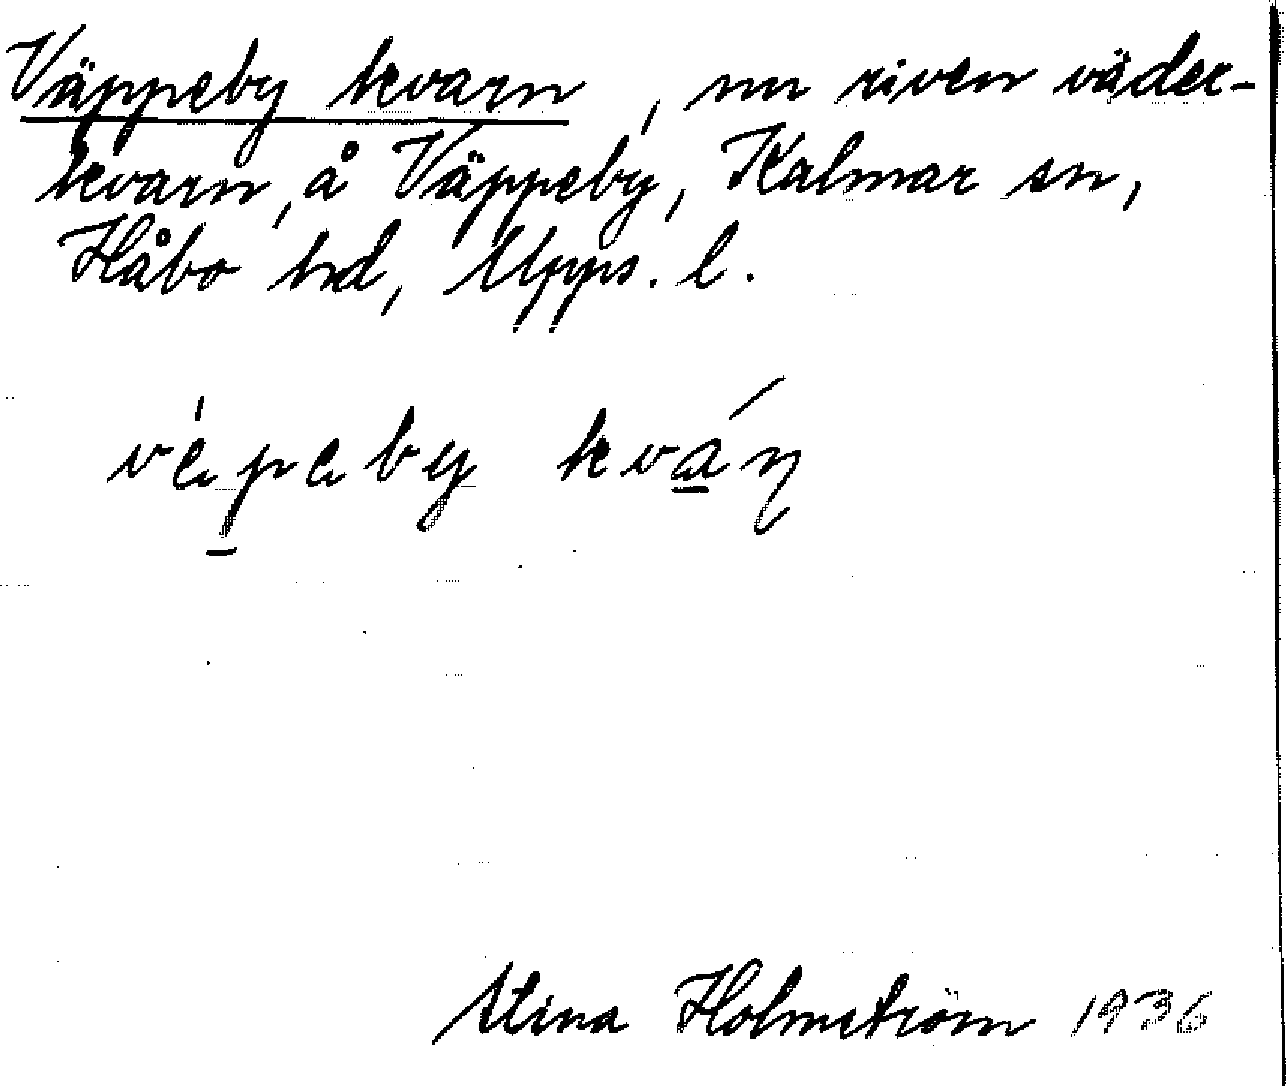 Väppeby kvarn, nu riven väder-
kvarn, å Väppeby, Kalmar sn,
Håbo hd, Upps. l.
vèpeby kván
Stina Holmström 1936